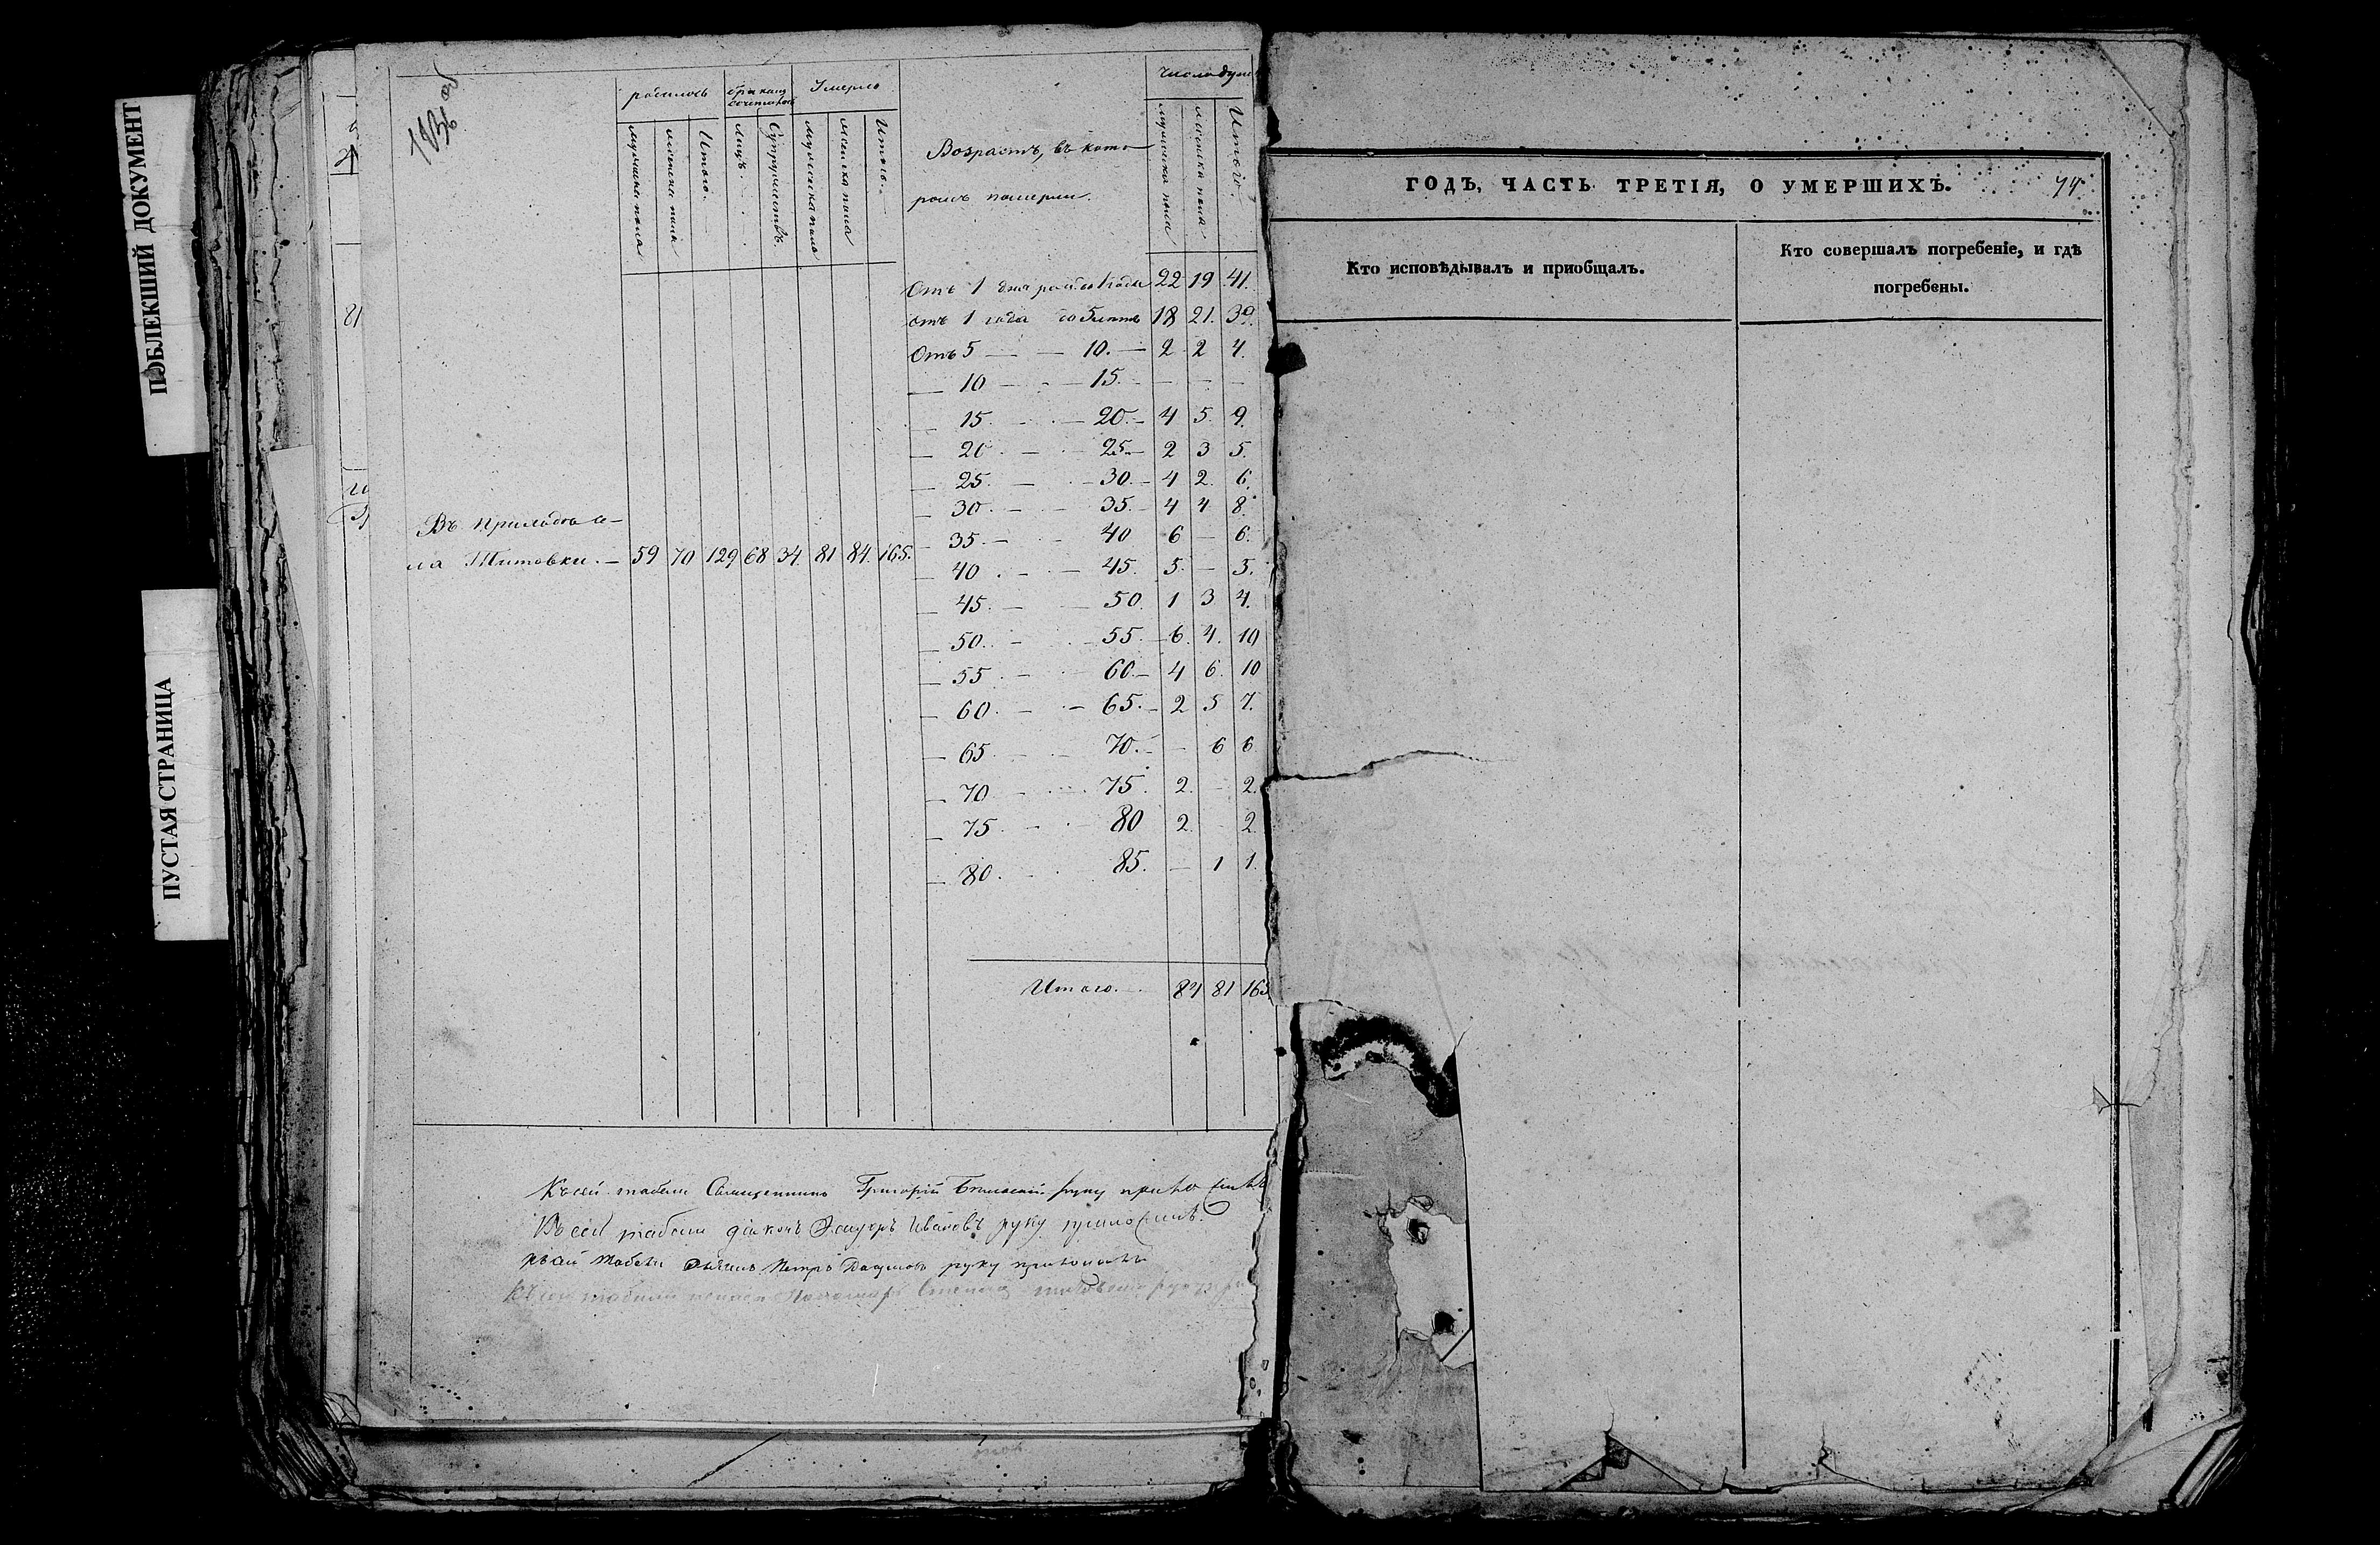 ПОБЛЕКШИЙ ДОКУМЕНТ
ПУСТАЯ СТРАНИЦА
родилось
бракомъ сочеталось
Умерло
мужеска пола
женска пола
Итого.
Лицъ.
Супружествъ.
мужеска пола
женска пола
Итого.
Возрастъ, въ кото-
ромъ померли.
Число душ
мужеска пола
женска пола
Итого.
Отъ 1 дня до 1 года 22 19 41.
отъ 1 года до 5 лѣтъ 18 21. 39.
Отъ 5 — — 10. — 2 2 4.
— 10 — — 15. — — — —
— 15. — — 20. — 4 5. 9.
— 20 — — 25 — 2 3 5.
— 25. — — 30. — 4 2. 6.
— 30 — — 35. — 4 4 8.
— 35. — — 40 6 — 6.
— 40. — — 45. 5. — 5.
— 45. — — 50. 1 3 4.
— 50. — — 55. — 6. 4. 10
— 55. — — 60. — 4 6. 10
— 60. — — 65. — 2 5 7.
— 65. — — 70. — — 6 6
— 70. — — 75. 2. — 2.
— 75. — — 80 2. — 2.
— 80. — 85. — 1 1.
Въ приходѣ се-
ла Титовки. — 59 70 129 68 34. 81 84. 165.
Итого. 84 81 165
Къ сей табели Священникъ Григорій руку приложилъ
Къ сей табели діаконъ Ивановъ руку приложилъ.
табели Петръ руку приложилъ
табели Пономарь
ГОДЪ, ЧАСТЬ ТРЕТІЯ, О УМЕРШИХЪ.
74
Кто исповѣдывалъ и приобщалъ.
Кто совершалъ погребеніе, и гдѣ
погребены.